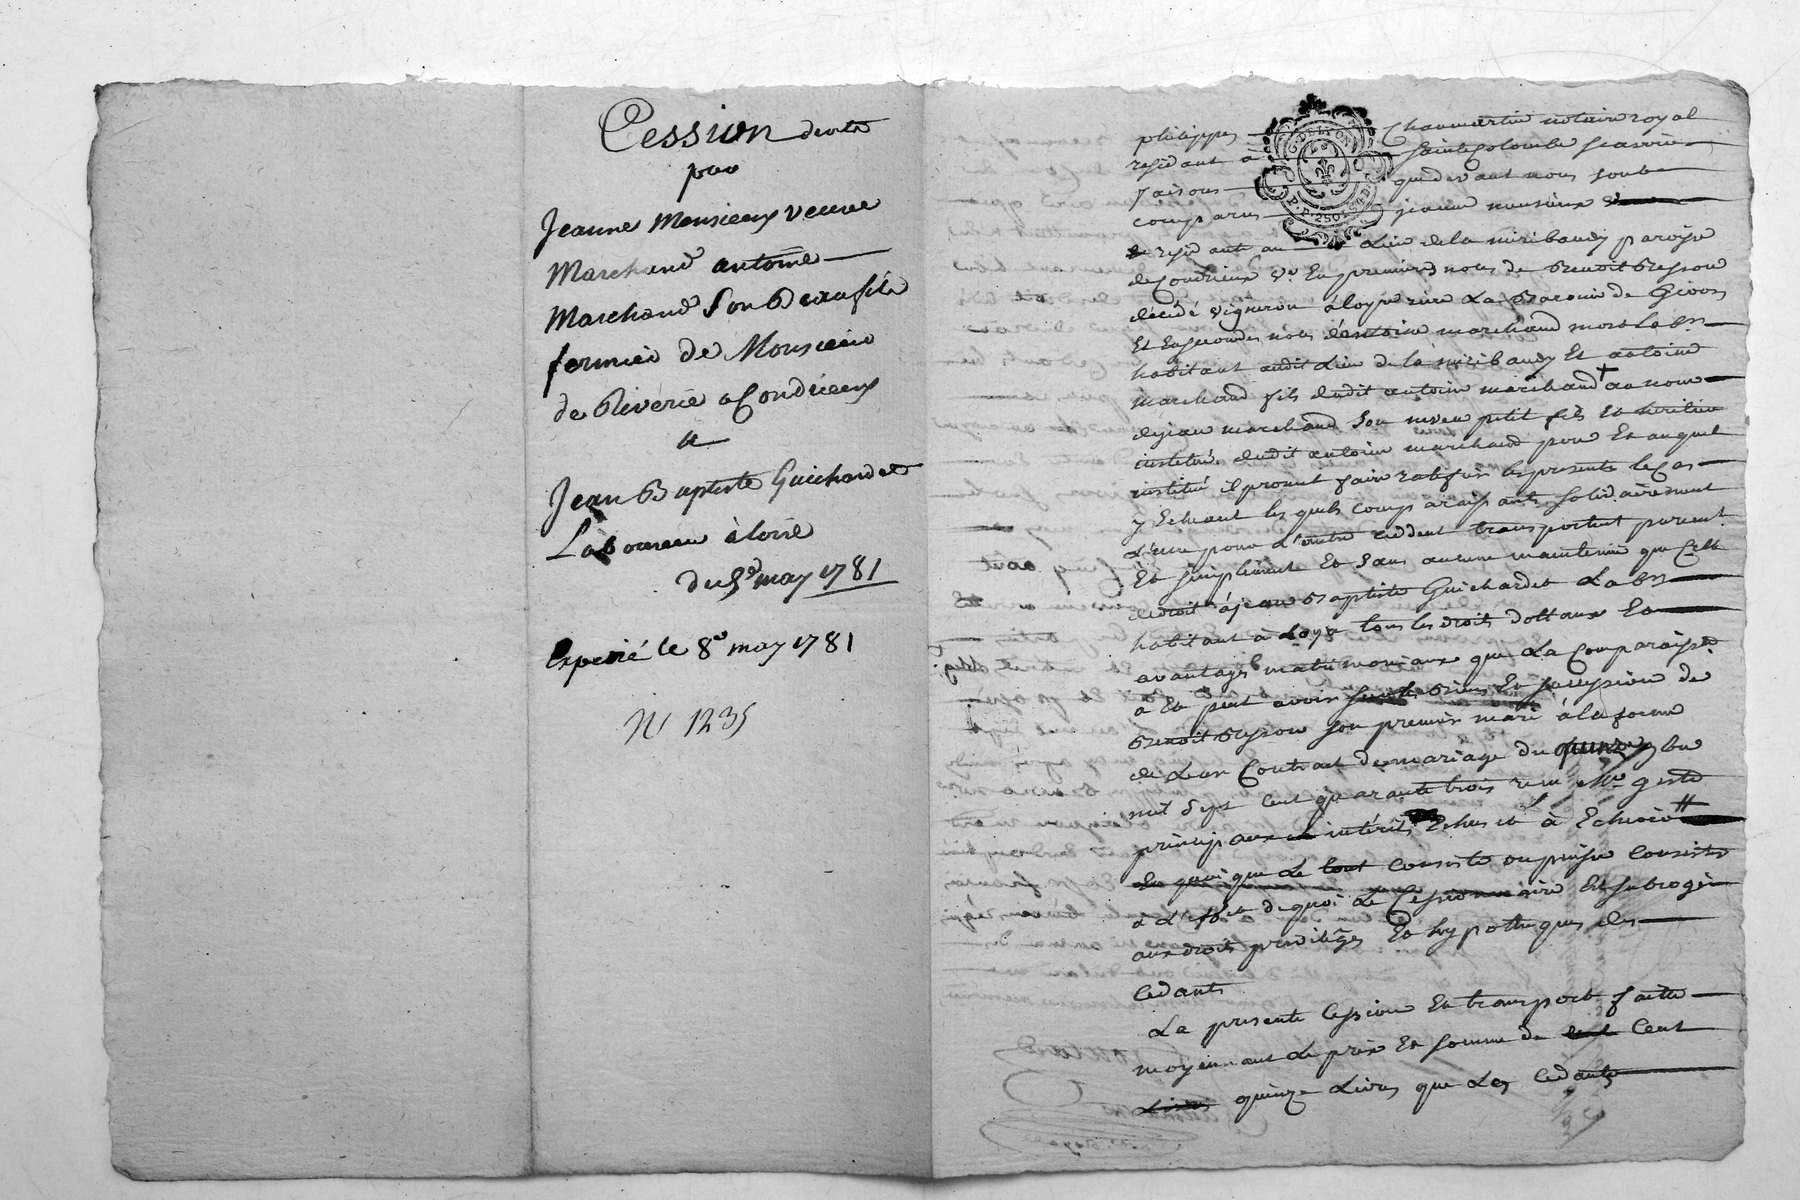 Cession droits
par
Jeanne Mousieux veuve
Marchand antoine
Marchand son Beaufils
fermier de Monsieur
de Riverie a Condrieux
a
Jean Baptiste Guichardet
Laboureur à loire
du 5e may 1781
Expedié le 8e may 1781
N 1235
G. DE LYON
philippes Chaumartin notaire royal
residant à Sainte Colombe
faisons que devant nous
comparus jeanne mousieux
residant au Lieu de la miribaudy paroisse
de Condrieux ve En premieres noces de Benoit Besson
décédé vigneron à loyre rière La Baronie de Givors
Et En secondes noces d'antoine marchand
habitant audit Lieu de la miribaudy Et antoine
marchand fils dudit antoine marchand au nom
de jean marchand son neveu petit fils Et heritier
institué dudit antoine marchand pour Et auquel
institué il promet faire ratifier les presentes le Cas
y Echeant les quels comparaissants solidairement
L'une pour L'autre cèddent transportent purement
Et simplement Et sans aucune maintenue que Celle
de droit à jean Baptiste Guichardet Lab
habitant à Loyre tous les droits dottaux Et
avantages matrimoniaux que La Comparaiss
a Et peut avoir Biens Et succession de
Benoit Besson son premier mari à la forme
de Leur Contrat de mariage du quinze
mil sept cent quarante trois reçu Me
principaux intérêts Echus et à Echeoir
En quoi que Le tout consiste ou puisse consister
à L'effet de quoi Le Cessionnaire Est subrogé
aux droits privilèges Et hypothèques des
cedants
La presente Cession Et transport faitte
moyennant Le prix Et somme de Cent
quinze Livres que Les cedants